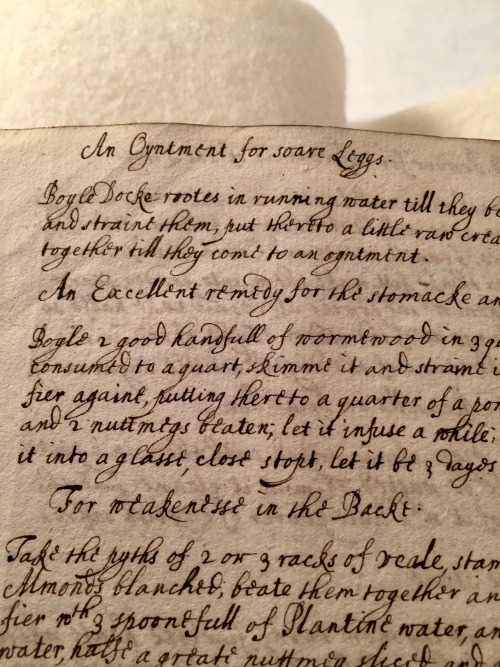 An Oyntment for soare Leggs.
Boyle Docke rootes in running water till they be
and straine them, put thereto a little raw crea
together till they come to an ogntment.
An Excellent remedy for the stomacke an
Boyle 2 good handfull of wormewood in 3 q
consumed to a quart, skimme it and straine i
fier againe, putting thereto a quarter of a po
and 2 nuttmegs beaten; let it infuse a while;
it into a glasse, close stopt, let it be 3 dayes
For weakenesse in the Backe.
Take the pyths of 2 or 3 racks of veale, stam
Almonds blanched, beate them together an
fier wth 3 spoonefull of Plantine water, an
water, halfe a greate nuttmeg sliced and